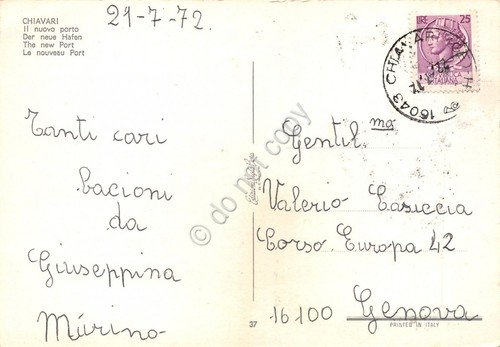 CHIAVARI
Il nuovo porto
Der neue Hafen
The new Port
Le nouveau Port
21-7-72.
Tanti cari
bacioni
da
Giuseppina
Múrino
LIRE 25
16043 CHIAVARI
Gentil. mo
Valerio Casiccia
Corso Europa 42
16100 Genova
37
PRINTED IN ITALY
© do not copy